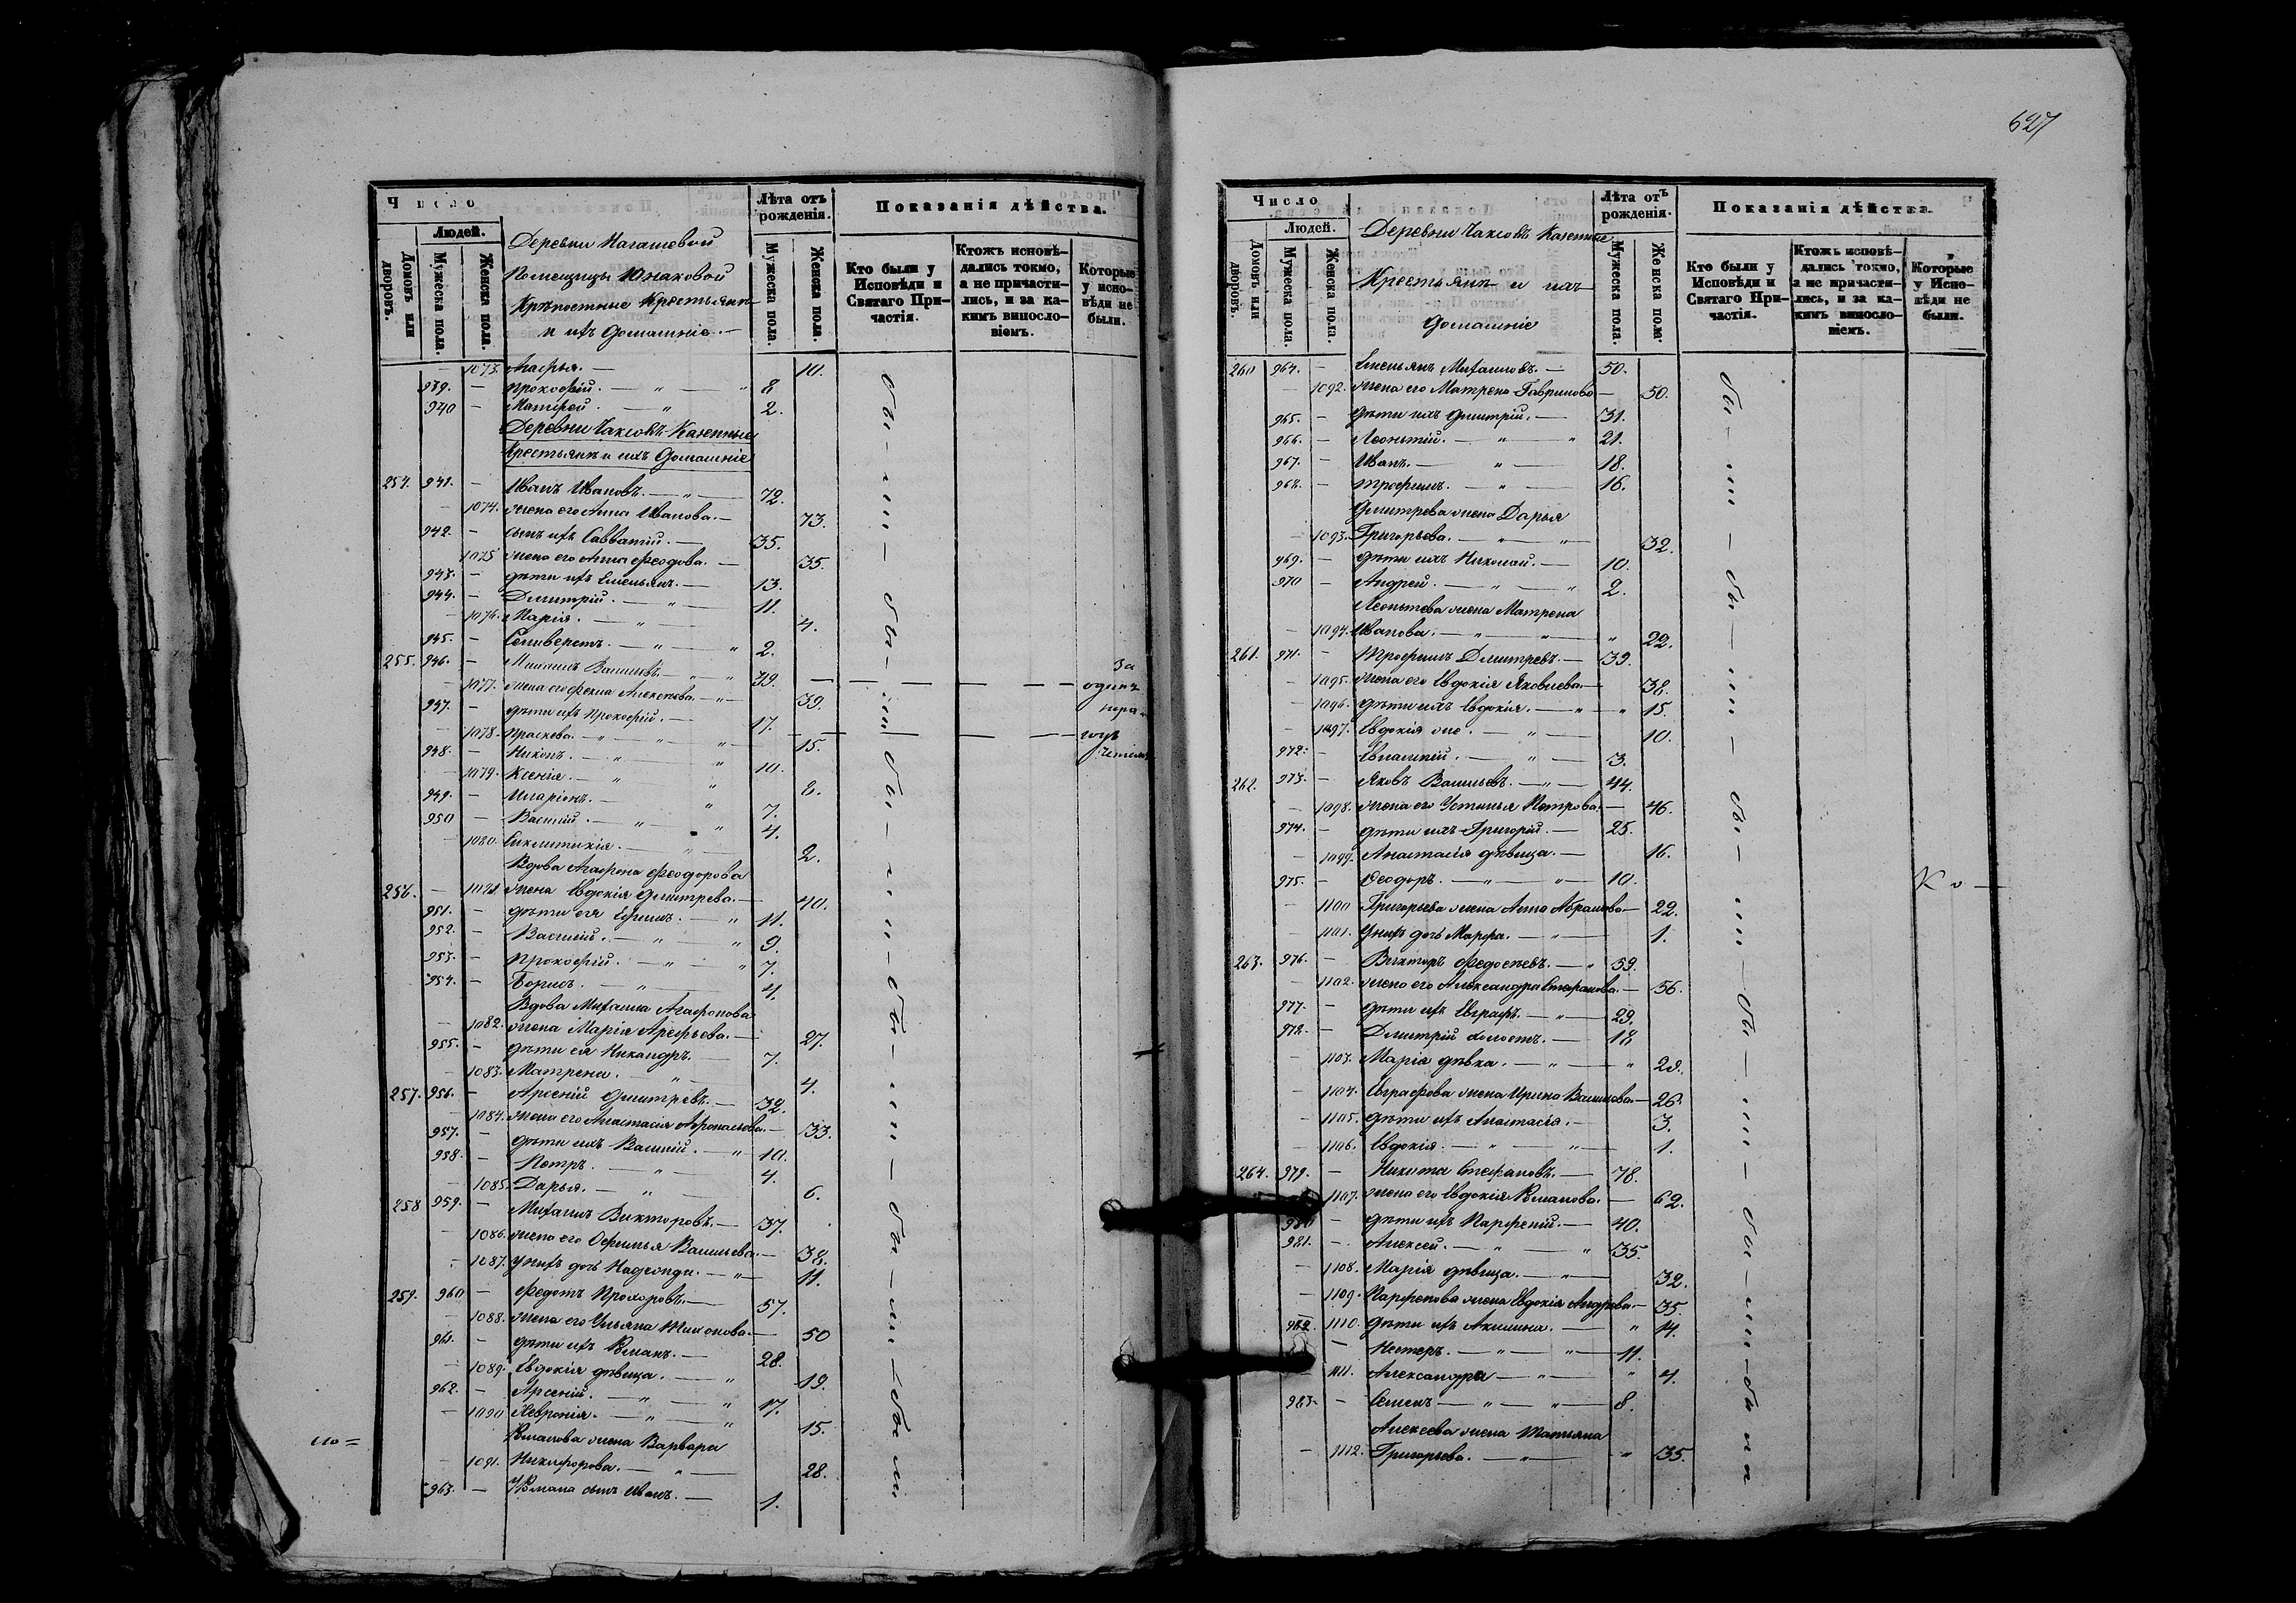 627
Число
Людей.
Домовъ или дворовъ.
Мужеска пола.
Женска пола.
Деревни Нагашевой
Помещицы Юнаковой
Крѣпостные Крестьяне
и ихъ домашніе.
Лѣта отъ рожденія.
Мужеска пола.
Женска пола.
Показанія дѣйства.
Кто были у Исповѣди и Святаго Причастія.
Ктожъ исповѣдались токмо, а не причастились, и за какимъ винословіемъ.
Которые у исповѣди не были.
1073. Агафья. 10.
939. Прокофій. 8
940 Матфей. 2.
Деревни Чаксовъ Казенные
Крестьяне и ихъ домашніе
254. 941. Иванъ Ивановъ. 72.
1074. жена его Анна Иванова. 73.
942. сынъ ихъ Савватій. 35.
1075 жена его Анна Федорова. 35.
943. дѣти ихъ Емельянъ. 13.
944. Дмитрій. 11.
1076. Марія. 4.
945. Селиверстъ. 2.
255. 946. Васильевъ. 39.
1077. жена его Фекла Алексѣева. 39.
947. дѣти ихъ Прокофій. 17.
1078. Праскева. 15.
948. Никонъ. 10.
1079. Ксенія. 8.
949. Иларіонъ. 7.
950 Василій. 4.
1080. Синклитикія. 2.
Вдова Агафона Феодорова
256. 1081 жена Евдокія Дмитрева. 40.
951. дѣти ея Ефимъ. 11.
952. Василій. 9.
953. Прокофій. 7.
954. Борисъ. 4.
Вдова Михаила Агафонова
1082. жена Марія Арефьева. 27.
955. дѣти ея Никандръ. 7.
1083. Матрена. 4.
257. 956. Арсеній Дмитревъ. 32.
1084. жена его Анастасія Афонасьева. 33.
957. дѣти ихъ Василій. 10.
958. Петръ. 4.
1085. Дарья. 6.
258 959. Михаилъ Викторовъ. 37.
1086. жена его Офимья Васильева. 38.
1087. у нихъ дочь Надежда. 11.
259. 960 Федотъ Прохоровъ. 57.
1088. жена его Ульяна Тихонова. 50
961. дѣти ихъ Романъ. 28.
1089. Евдокія дѣвица. 19.
962. Арсеній. 17.
1090 Хевронія. 15.
Романова жена Варвара
1091. Никифорова. 28.
963. у Романа сынъ Иванъ. 1.
по =
Число
Людей.
Домовъ или дворовъ.
Мужеска пола.
Женска пола.
Деревни Чаксовъ Казенные
Крестьяне и ихъ
домашніе
Лѣта отъ рожденія.
Мужеска пола.
Женска пола.
Показанія дѣйства.
Кто были у Исповѣди и Святаго Причастія.
Ктожъ исповѣдались токмо, а не причастились, и за какимъ винословіемъ.
Которые у Исповѣди не были.
260 964. Емельянъ Михайловъ. 50.
1092. жена его Матрена Гаврилова 50.
965. дѣти ихъ Дмитрій. 31.
966. Леонтій. 21.
967. Иванъ. 18.
968. Трофимъ. 16.
Дмитрева жена Дарья
1093. Григорьева. 32.
969. дѣти ихъ Николай. 10.
970 Андрей. 2.
Леонтева жена Матрена
1094. Иванова. 22.
261. 971. Трофимъ Дмитревъ. 39.
1095. жена его Евдокія Яковлева. 38.
1096. дѣти ихъ Евдокія. 15.
1097. Евдокія же. 10.
972. Евлампій. 3.
262. 973. Яковъ Васильевъ. 44.
1098. жена его Устинья Петрова. 46.
974. дѣти ихъ Григорій. 25.
1099. Анастасія дѣвица. 16.
975. Феодоръ. 10.
1100 Григорьева жена Анна Абрамова 22.
1101. У нихъ дочь Марфа. 1.
263. 976. Викторъ Федосѣевъ. 59.
1102. жена его Александра Стефанова. 56.
977. дѣти ихъ Евграфъ. 29.
978. Дмитрій холостъ. 18
1103. Марія дѣвка. 23.
1104. Евграфова жена Ирина Васильева. 26.
1105. дѣти ихъ Анастасія. 3.
1106. Евдокія. 1.
264. 979. Никита Стефановъ. 78.
1107. жена его Евдокія Романова. 62.
980 дѣти ихъ Парфеній. 40.
981. Алексей. 35.
1108. Марія дѣвица. 32.
1109. Парфенова жена Евдокія Андреева. 35.
1110. дѣти ихъ Акилина. 14.
982. Нестеръ. 11.
1111. Александра 4.
983. Семенъ 8.
Алексеева жена Татьяна
1112. Григорьева. 35.